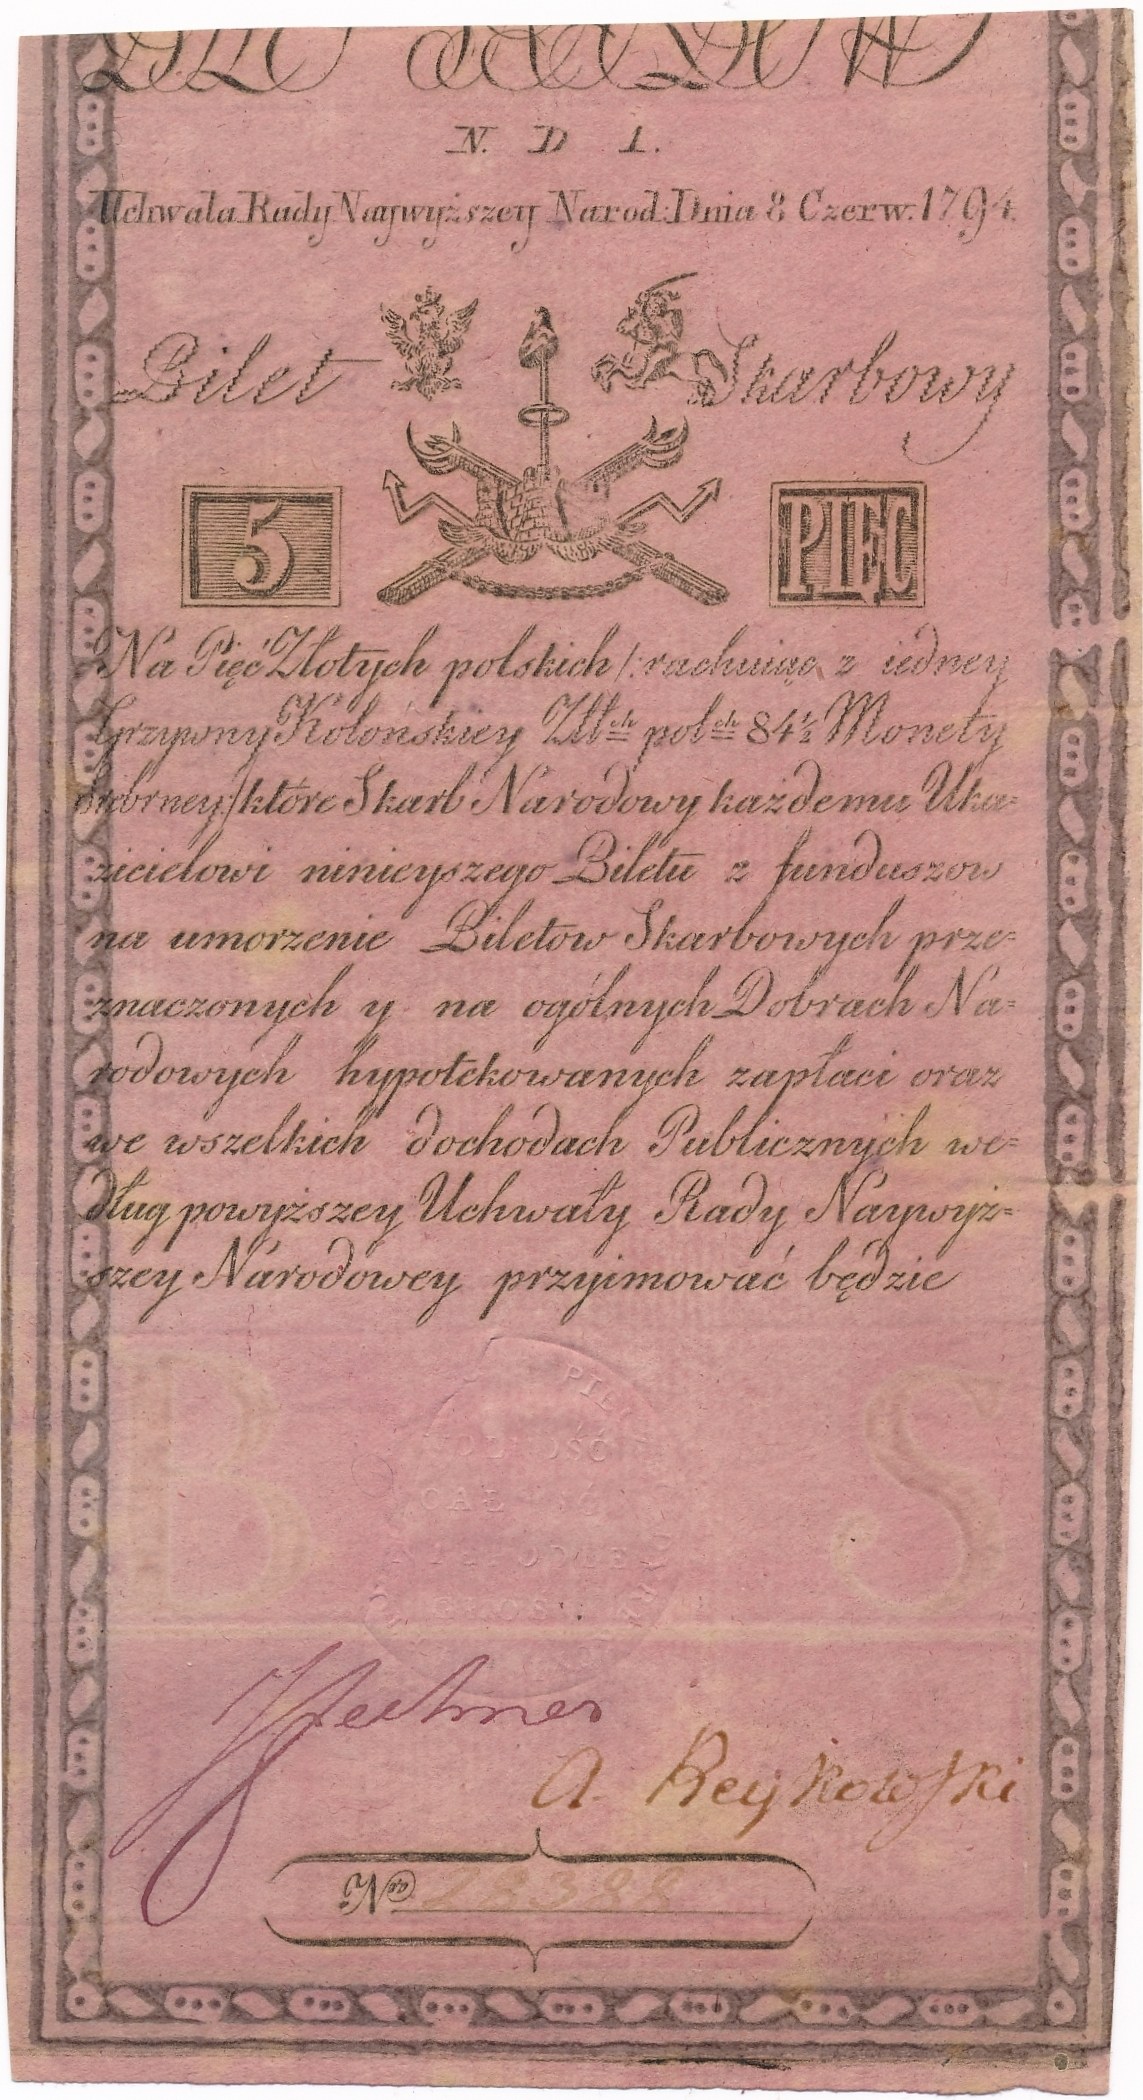 N. D 1.
Uchwala Rady Naywyższey Narod: Dnia 8 Czerw. 1794.
Bilet Skarbowy
5 PIĘĆ
Na Pięć Złotych polskich /: rachuiąc z iedney
Grzywny Kolońskiey Złł^ch pol^ch 84½ Monety
srebrney/ które Skarb Narodowy każdemu Uka=
zicielowi ninieyszego Biletu z funduszow
na umorzenie Biletow Skarbowych prze=
znaczonych y na ogólnych Dobrach Na=
rodowych hypotekowanych zapłaci oraz
we wszelkich dochodach Publicznych we=
dług powyższey Uchwały Rady Naywyż=
szey Narodowey przyimować będzie
B S
A. Reykowski
N^ro 28388